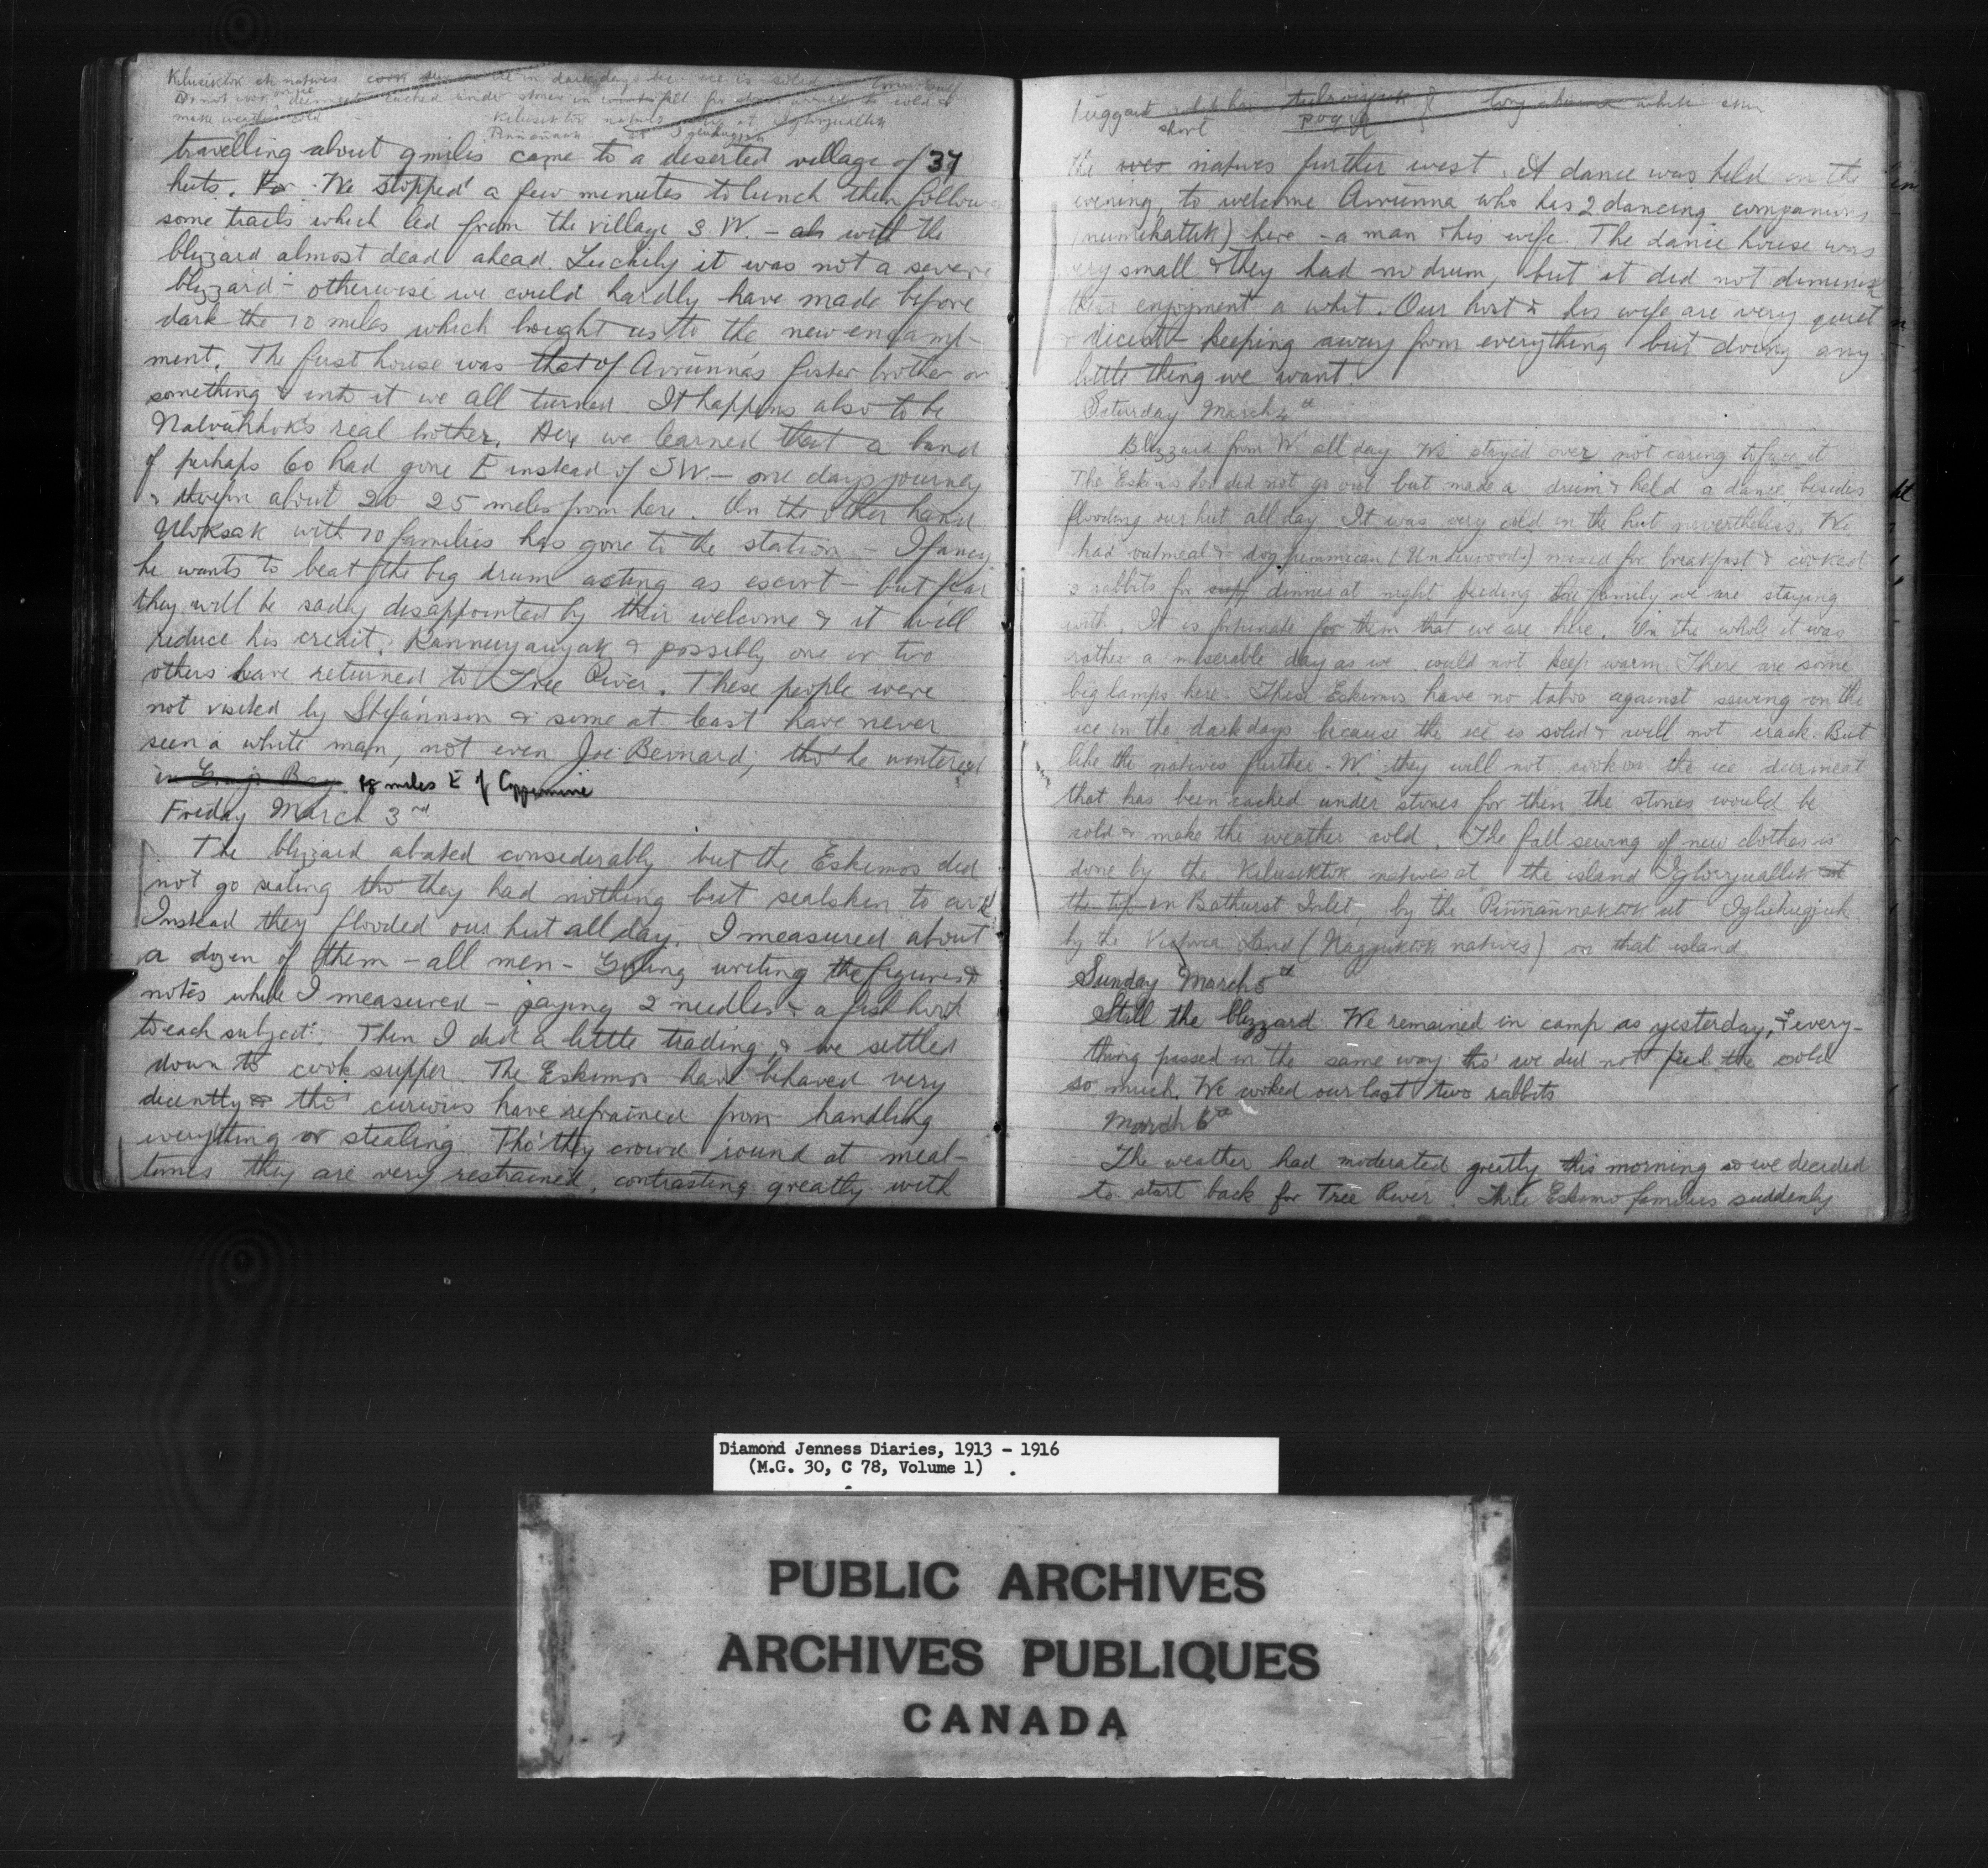 Kilusiktok natives
make weather cold
Kilusiktok natives at Iglorjuallik
travelling about 9 miles came to a deserted village of 34
huts. For We stopped a few minutes to lunch then follow
some trails which led from the village S.W. – ah with the
blizzard almost dead ahead. Luckily it was not a severe
blizzard – otherwise we could hardly have made before
dark the 10 miles which brought us to the new encamp-
ment. The first house was that of Avrunna's foster brother or
something & into it we all turned. It happens also to be
Nalvahhok's real brother. Here we learned that a band
of perhaps 60 had gone E instead of SW. – one days journey
& therefore about 20 25 miles from here. On the other hand
Uloksak with 10 families has gone to the station – I fancy
he wants to beat the big drum acting as escort – but fear
they will be sadly disappointed by their welcome & it will
reduce his credit. Kanneyauyak & possibly one or two
others have returned to Tree River. These people were
not visited by Stefánnson & some at least have never
seen a white man, not even Joe Bernard, tho' he wintered
in Grays Bay. 18 miles E of Coppermine
Friday March 3rd
The blizzard abated considerably but the Eskimos did
not go sealing tho' they had nothing but sealskin to eat
Instead they flooded our hut all day. I measured about
a dozen of them – all men – Girling writing the figures &
notes while I measured – paying 2 needles & a fish hook
to each subject. Then I did a little trading, & we settled
down to cook supper. The Eskimos have behaved very
decently & tho' curious have refrained from handling
everything or stealing. Tho' they crowd round at meal-
times they are very restrained, contrasting greatly with
long white
short
the wes natives further west. A dance was held in the
evening, to welcome Avrunna who has 2 dancing companions
(numikattik) here – a man & his wife. The dance house was
very small & they had no drum, but it did not diminish
their enjoyment a whit. Our host & his wife are very quiet
& decent – keeping away from everything but doing any
little thing we want.
Saturday March 4th
Blizzard from W all day. We stayed over not caring to face it
The Eskimos too did not go out but made a drum & held a dance, besides
flooding our hut all day. It was very cold in the hut nevertheless. We
had oatmeal & dog pemmican (Underwoods) mixed for breakfast & cooked
3 rabbits for supp dinner at night feeding the family we are staying
with. It is fortunate for them that we are here. On the whole it was
rather a miserable day as we could not keep warm. There are some
big lamps here. These Eskimos have no taboo against sewing on the
ice in the dark days because the ice is solid & will not crack. But
like the natives further W. they will not cook on the ice deermeat
that has been cached under stones for then the stones would be
cold & make the weather cold. The fall sewing of new clothes is
done by the Kilusiktok natives at the island Iglorjuallik at
the top in Bathurst Inlet, by the Pinnannaktok at Igluhugjuk
by the Victoria Land (Nagjuktok natives) on that island.
Sunday March 5th
Still the blizzard. We remained in camp as yesterday, & every-
thing passed in the same way tho' we did not feel the cold
so much. We cooked our last two rabbits
March 6th
The weather had moderated greatly this morning so we decided
to start back for Tree River. Three Eskimo families suddenly
Diamond Jenness Diaries, 1913 - 1916
(M.G. 30, C 78, Volume 1)
PUBLIC ARCHIVES
ARCHIVES PUBLIQUES
CANADA